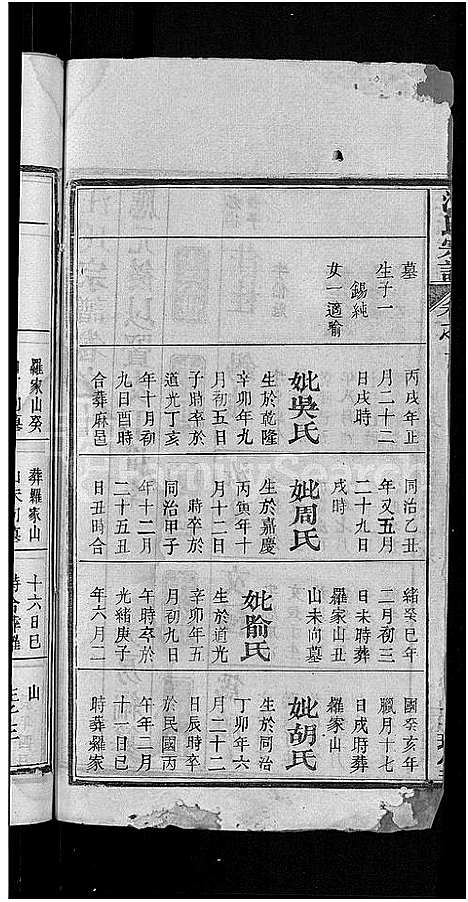 氏宗譜
墓
生子一
錫純
女一適喻
丙戌年正
月二十二
日戌時
妣吳氏
生於乾隆
辛卯年九
月初五日
子時卒於
道光丁亥
年十月初
九日酉時
合葬麻邑
同治乙丑
年又五月
二十九日
戌時
妣周氏
生於嘉慶
丙寅年十
月十二日
時卒於
同治甲子
年十二月
二十五丑
日丑時合
緒癸巳年
二月初三
日未時葬
羅家山丑
山未向墓
妣喻氏
生於道光
辛卯年五
月初九日
午時卒於
光緒庚子
年六月二
國癸亥年
臘月十七
日戌時葬
羅家山
妣胡氏
生於同治
丁卯年六
月二十二
日辰時卒
於民國丙
午年二月
十一日巳
時葬羅家
羅家山癸
葬羅家山
十六日巳
山